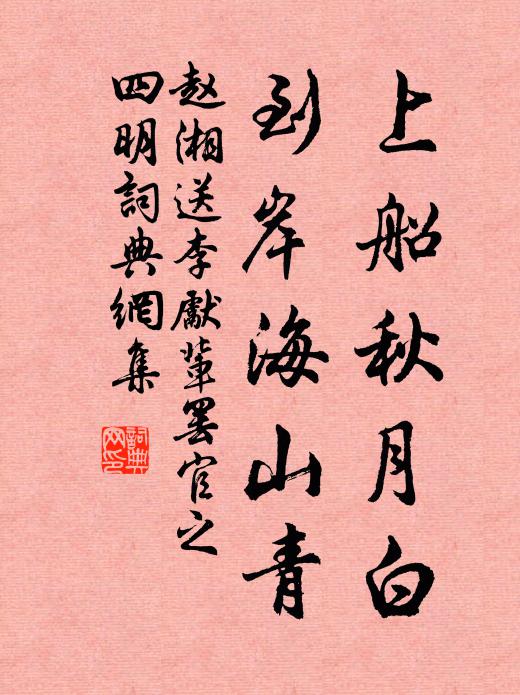 上船秋月白
到岸海山青
赵湘送李獻輩罢官之
四明詞典網集
詞典
网印